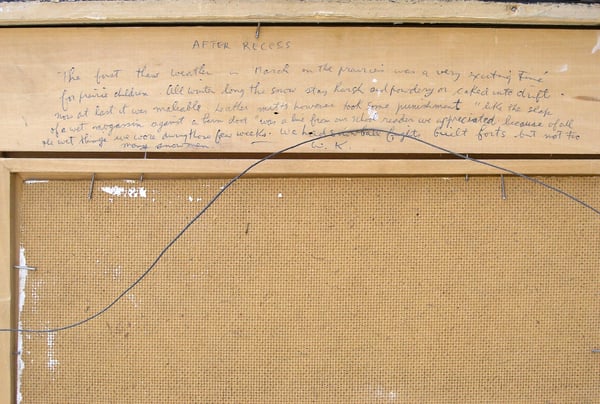 AFTER RECESS
"The first thaw weather in March on the prairies was a very exciting time
for prairie children. All winter long the snow stay harsh and powdery or caked into drift.
now at last it was malleable. Leather mitts however took some punishment "like the slap
of a wet moccassin against a barn door" was a line from our school reader we appreciated because of all
the wet things we wore during those few weeks. We had snowball fights, built forts but not too
many snowmen. W. K.